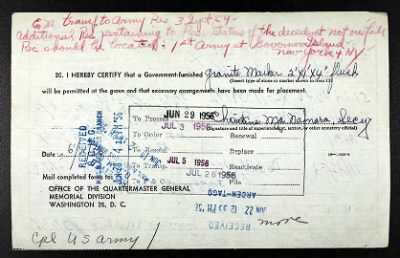 EM transf to Army Res 3 Sept 54.
Additional Rec pertaining to Res. status of the decedent not on file
Rec should be located: 1st Army at Governors Island
New York 4 NY
20. I HEREBY CERTIFY that a Government-furnished Granite Marker 2'x1'x4" flush
(Insert type of stone or marker shown in item 2)
will be permitted at the grave and that necessary arrangements have been made for placement.
To Process JUN 29 1956
JUL 3 1956
Mc Namara, Secy
(Signature and title of superintendent, sexton, or other cemetery official)
To Order
Renewal
RECEIVED
Date
Replace
JUL 5 1956
Reactivate
JUL 26 1956
File
Mail completed form to:
OFFICE OF THE QUARTERMASTER GENERAL
MEMORIAL DIVISION
WASHINGTON 25, D. C.
ARCEN-TAGO
JUN 22 12 33 PM '56
RECEIVED
more
Cpl US army /